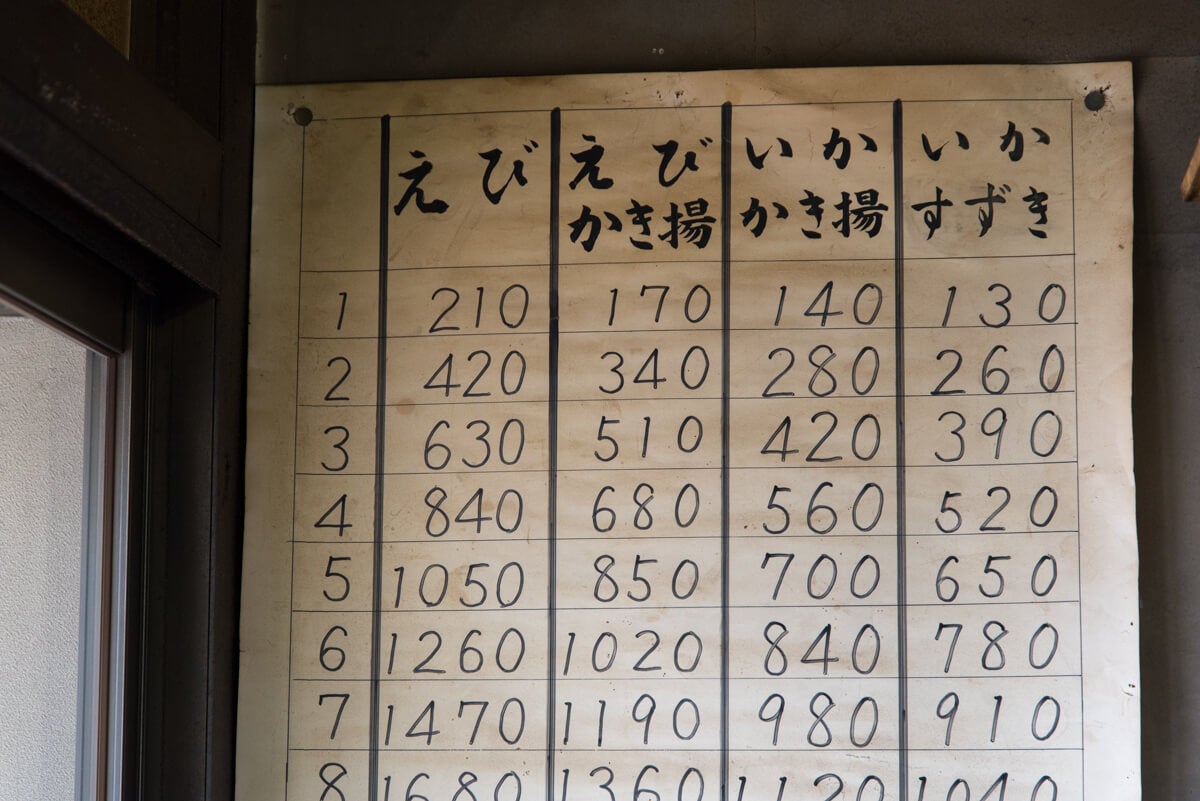 えび えび いか いか
かき揚 かき揚 すずき
1 210 170 140 130
2 420 340 280 260
3 630 510 420 390
4 840 680 560 520
5 1050 850 700 650
6 1260 1020 840 780
7 1470 1190 980 910
8 1680 1360 1120 1040